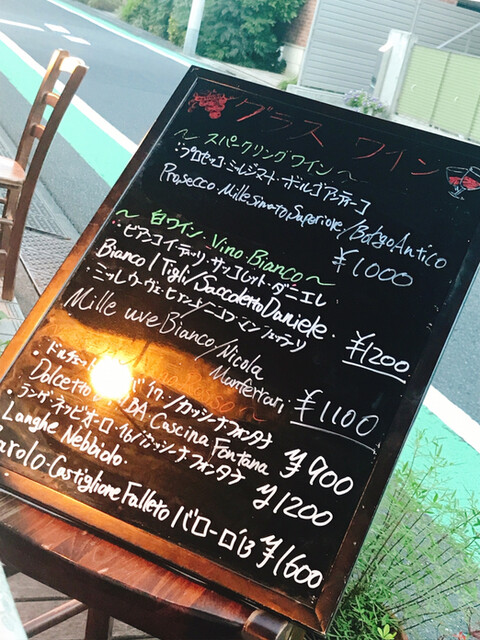 グラス ワイン
～スパークリングワイン～
・プロセッコ・ミレジマート・ボルゴアンティーコ
Prosecco Millesimato Superiore/BolgoAntico
¥1000
～白ワイン Vino Bianco～
・ビアンコ イ・テッリ・サッコレット・ダニエレ
Bianco I Tigli/Daccoletto Daniele.
¥1200
・ミッレ・ウーヴェ・ビアンコ/ニコラ
Mille uve Bianco/Nicola
Manferrari
¥1100
カッシーナフォンタナ
Dolcetto BA Cascina Fontana
¥900
・ランゲ・ネッビオーロ カッシーナフォンタナ
Langhe Nebbiolo.
¥1200
arolo Castiglione Falleto バローロ'13
¥1600